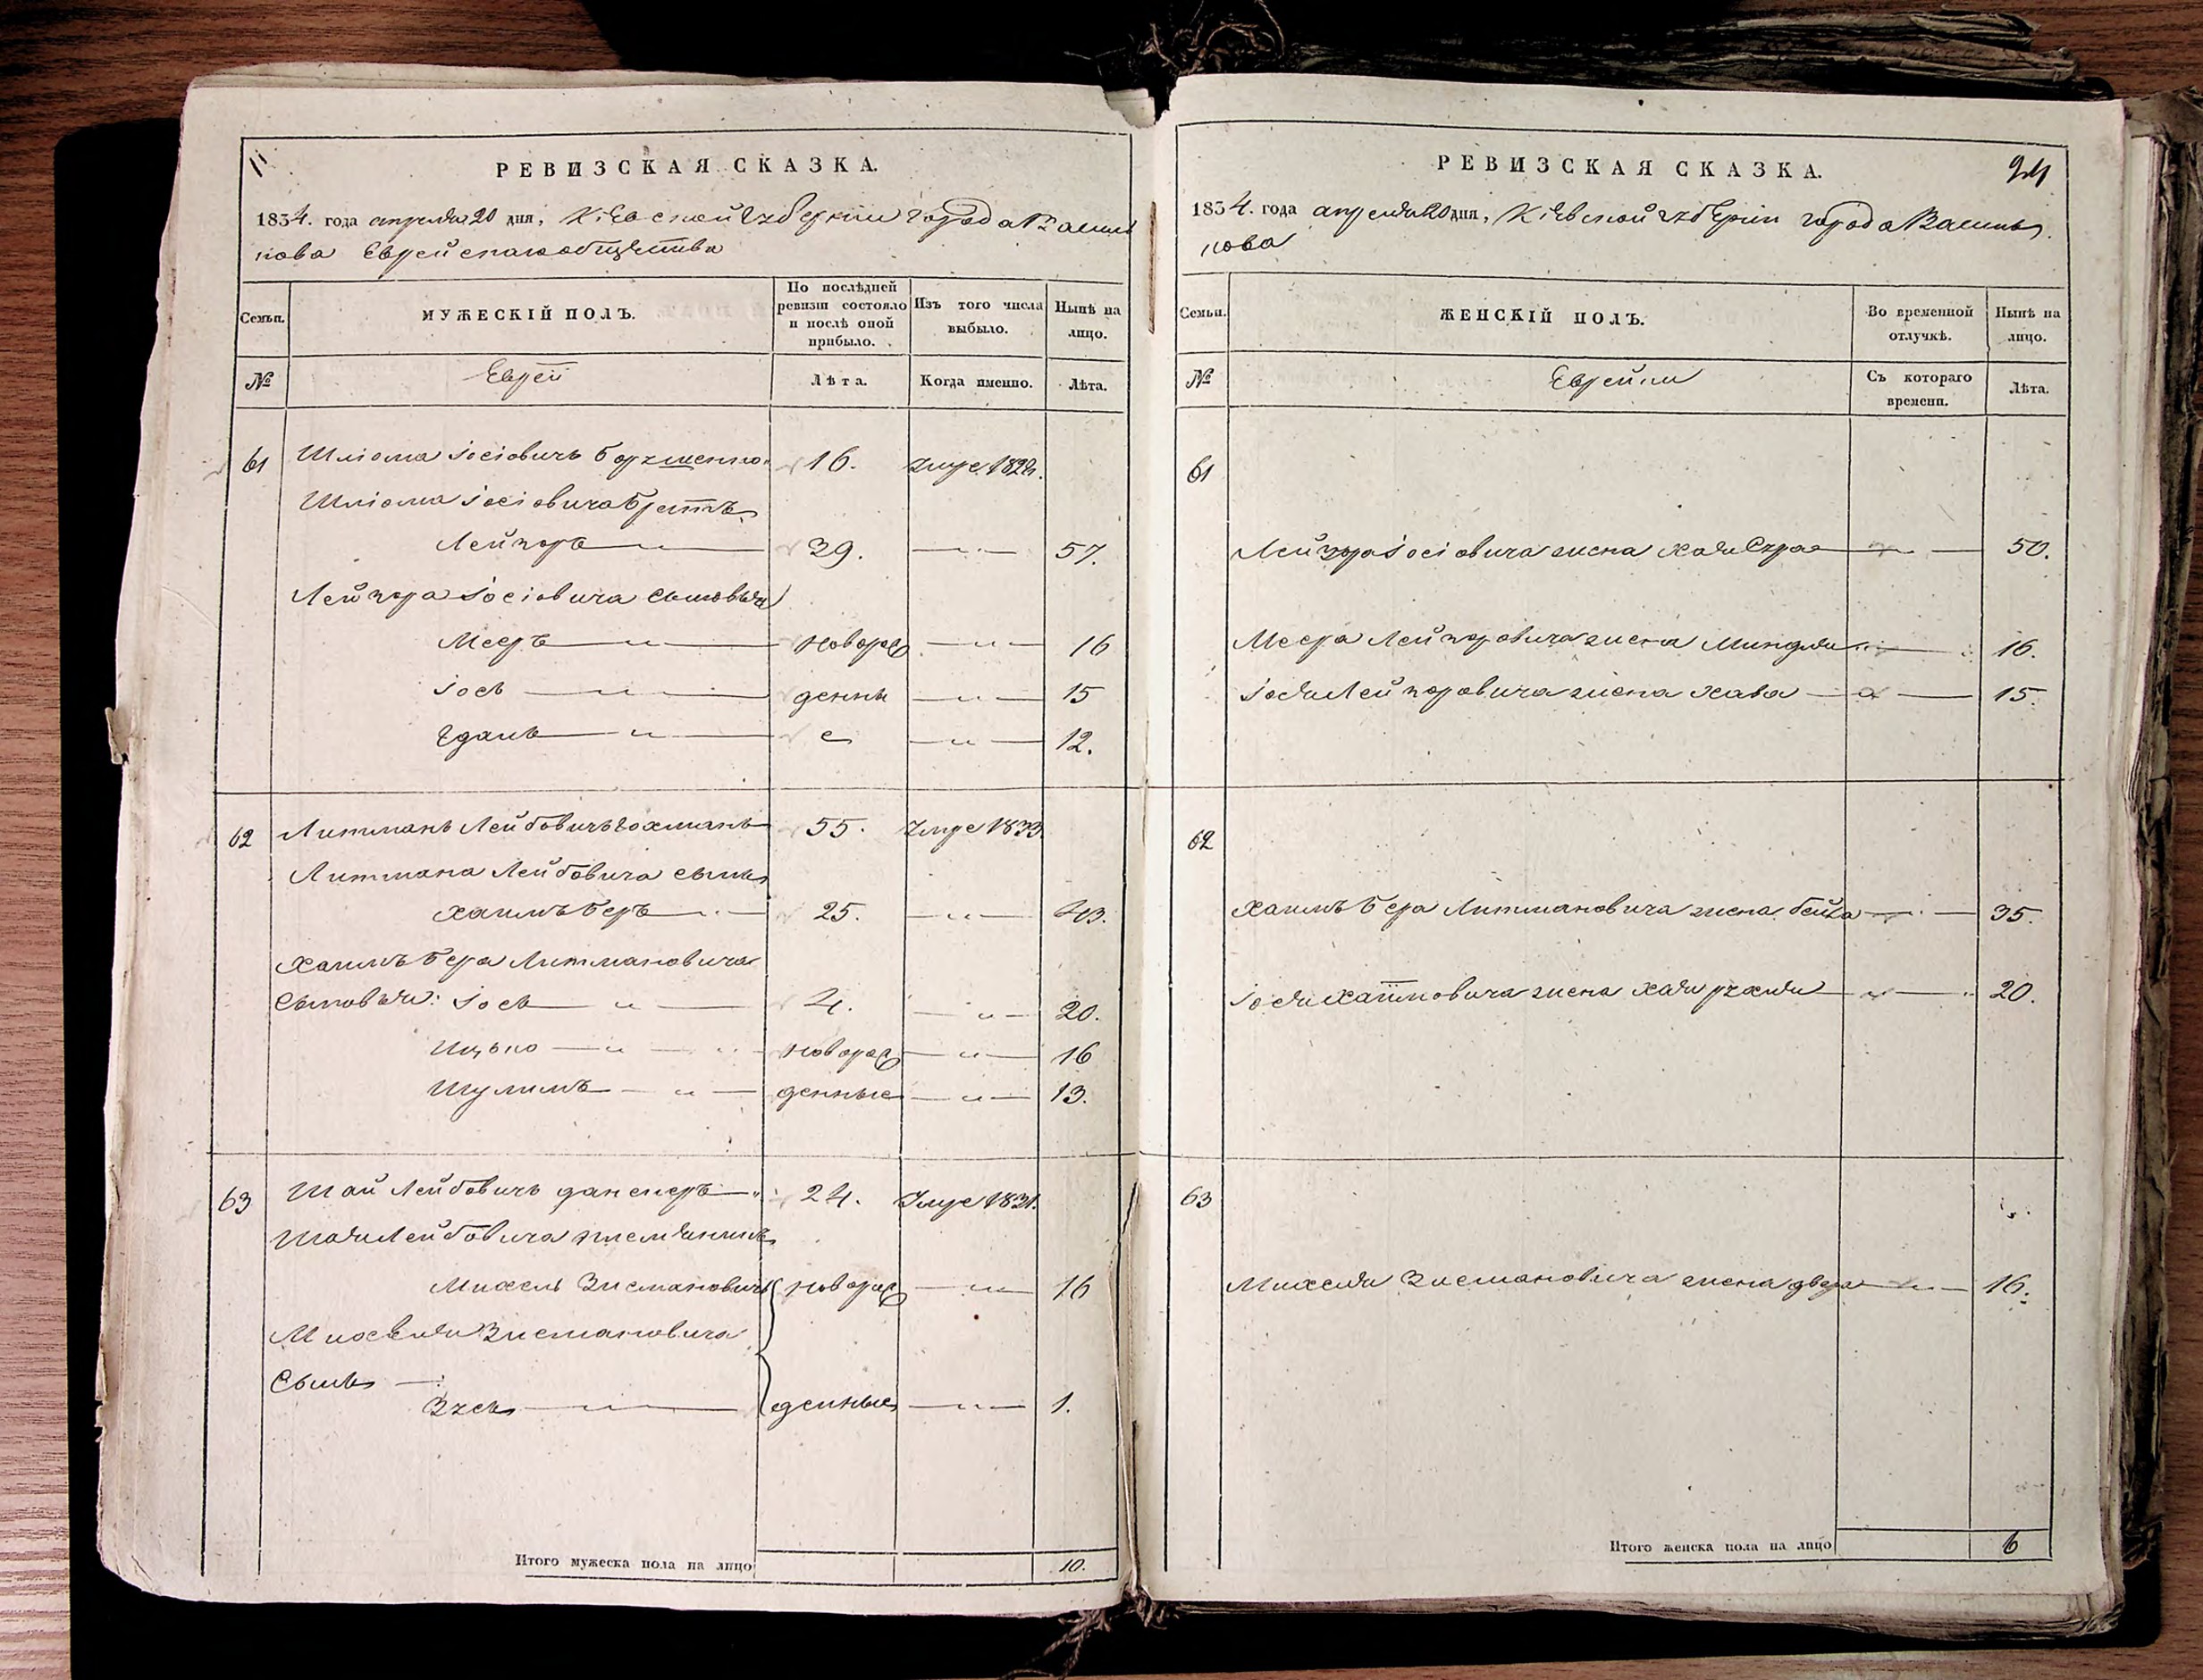 11
РЕВИЗСКАЯ СКАЗКА.
1834. года апреля 20 дня, Кіевской губерніи города Василь
кова Еврейскаго общества
Семьи.
МУЖЕСКІЙ ПОЛЪ.
По послѣдней ревизіи состояло и послѣ оной прибыло.
Изъ того числа выбыло.
Нынѣ на лицо.
№
Евреи
Лѣта.
Когда именно.
Лѣта.
61 Шліома Іосіовичъ 16. умре
Шліома Іосіовича братъ
Лейзоръ 39. 57.
Лейзора Іосіовича сыновья
Мееръ новорож 16
Іось денны 15
е 12.
62 Литманъ Лейбовичъ Гохманъ 55. умре 1833.
Литмана Лейбовича сынъ
Хаимъ Беръ 25. 43.
Хаимъ Бера Литмановича
сыновья: Іось 4. 20.
Ицько новорож 16
Шулимъ денные 13.
63 Шай Лейбовичъ 24. умре 1831.
Шая Лейбовича племянникъ
Михель Зисмановичъ новорож 16
Михеля Зисмановича
сынъ
Зусь денные 1.
Итого мужеска пола на лицо 10.
РЕВИЗСКАЯ СКАЗКА.
24
1834. года апреля 20 дня, Кіевской губерніи города Василь
кова
Семьи.
ЖЕНСКІЙ ПОЛЪ.
Во временной отлучкѣ.
Нынѣ на лицо.
№
Еврейки
Съ котораго времени.
Лѣта.
61
Лейзора Іосіовича жена Хая Сура 50.
Меера Лейзоровича жена Миндля 16.
Іося Лейзоровича жена Хава 15.
62
Хаимъ Бера Литмановича жена Бейла 35.
Іося Хаимовича жена Хая Рухля 20.
63
Михеля Зисмановича жена Двера 16.
Итого женска пола на лицо 6